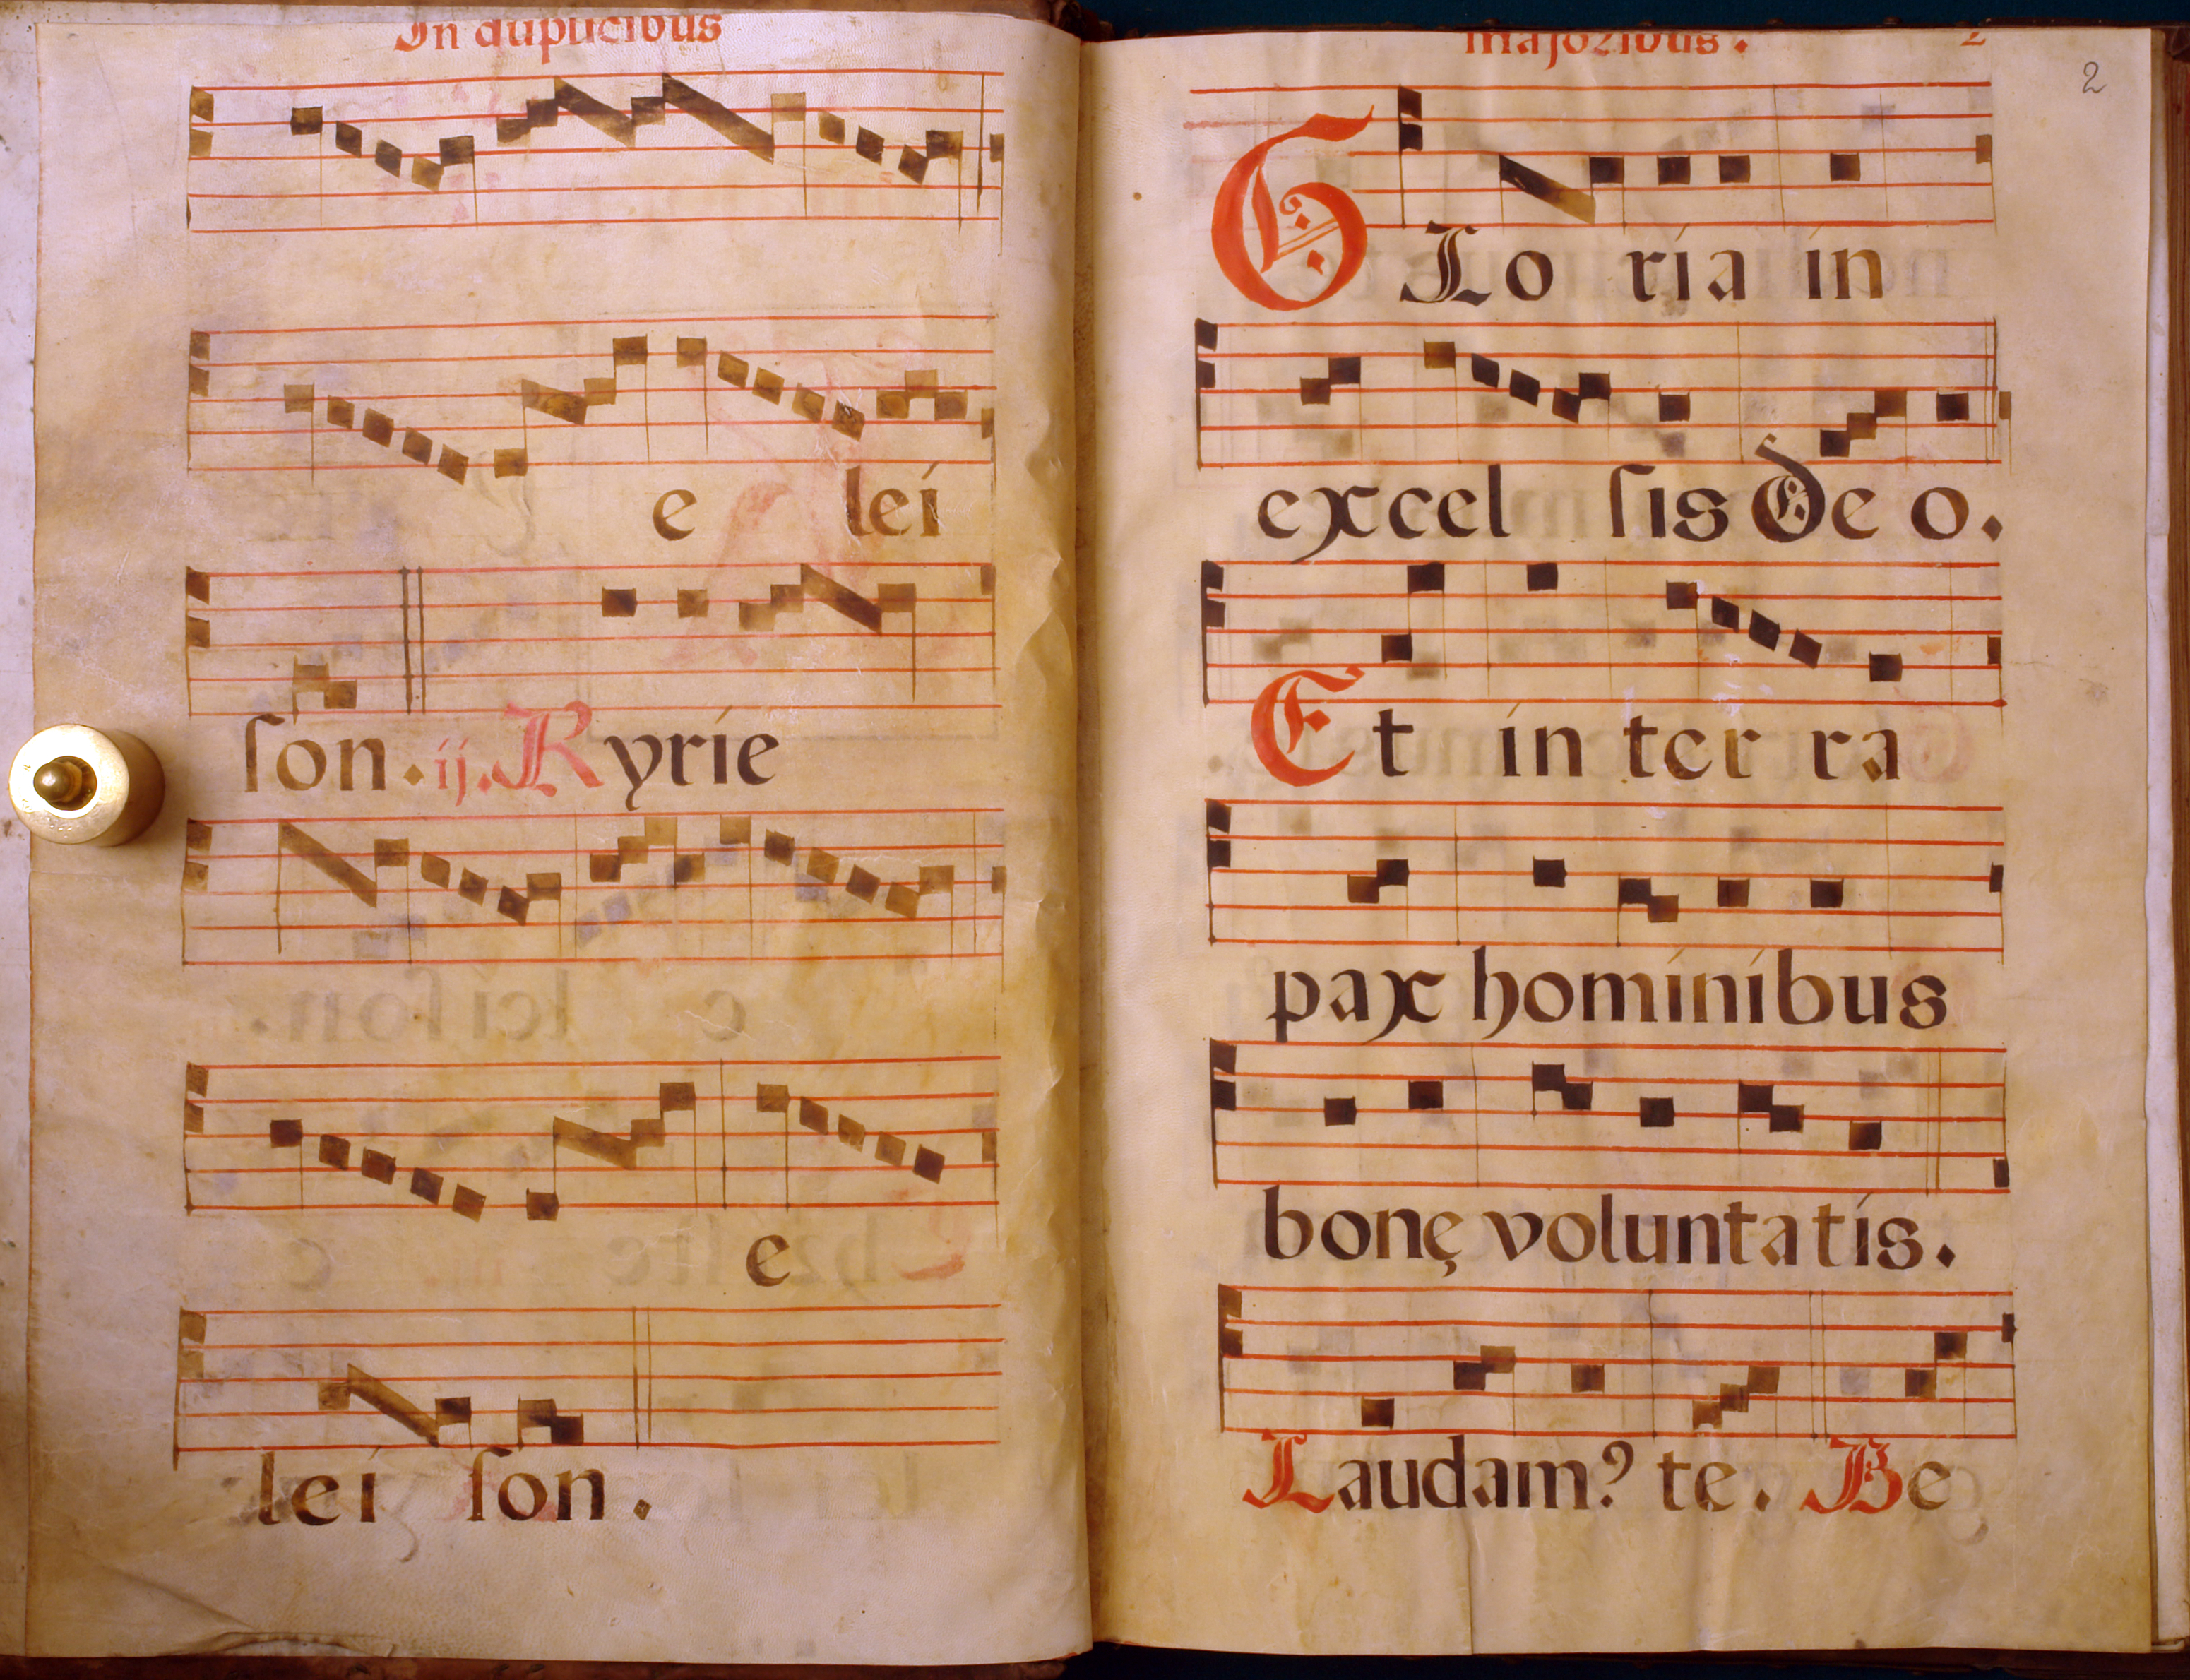 In duplicibus
e lei
ſon. ij. Kyrie
e
lei ſon.
majoribus. 2
2
GLo ria in
excel ſis De o.
Et in ter ra
pax hominibus
bonę voluntatis.
Laudam? te. Be